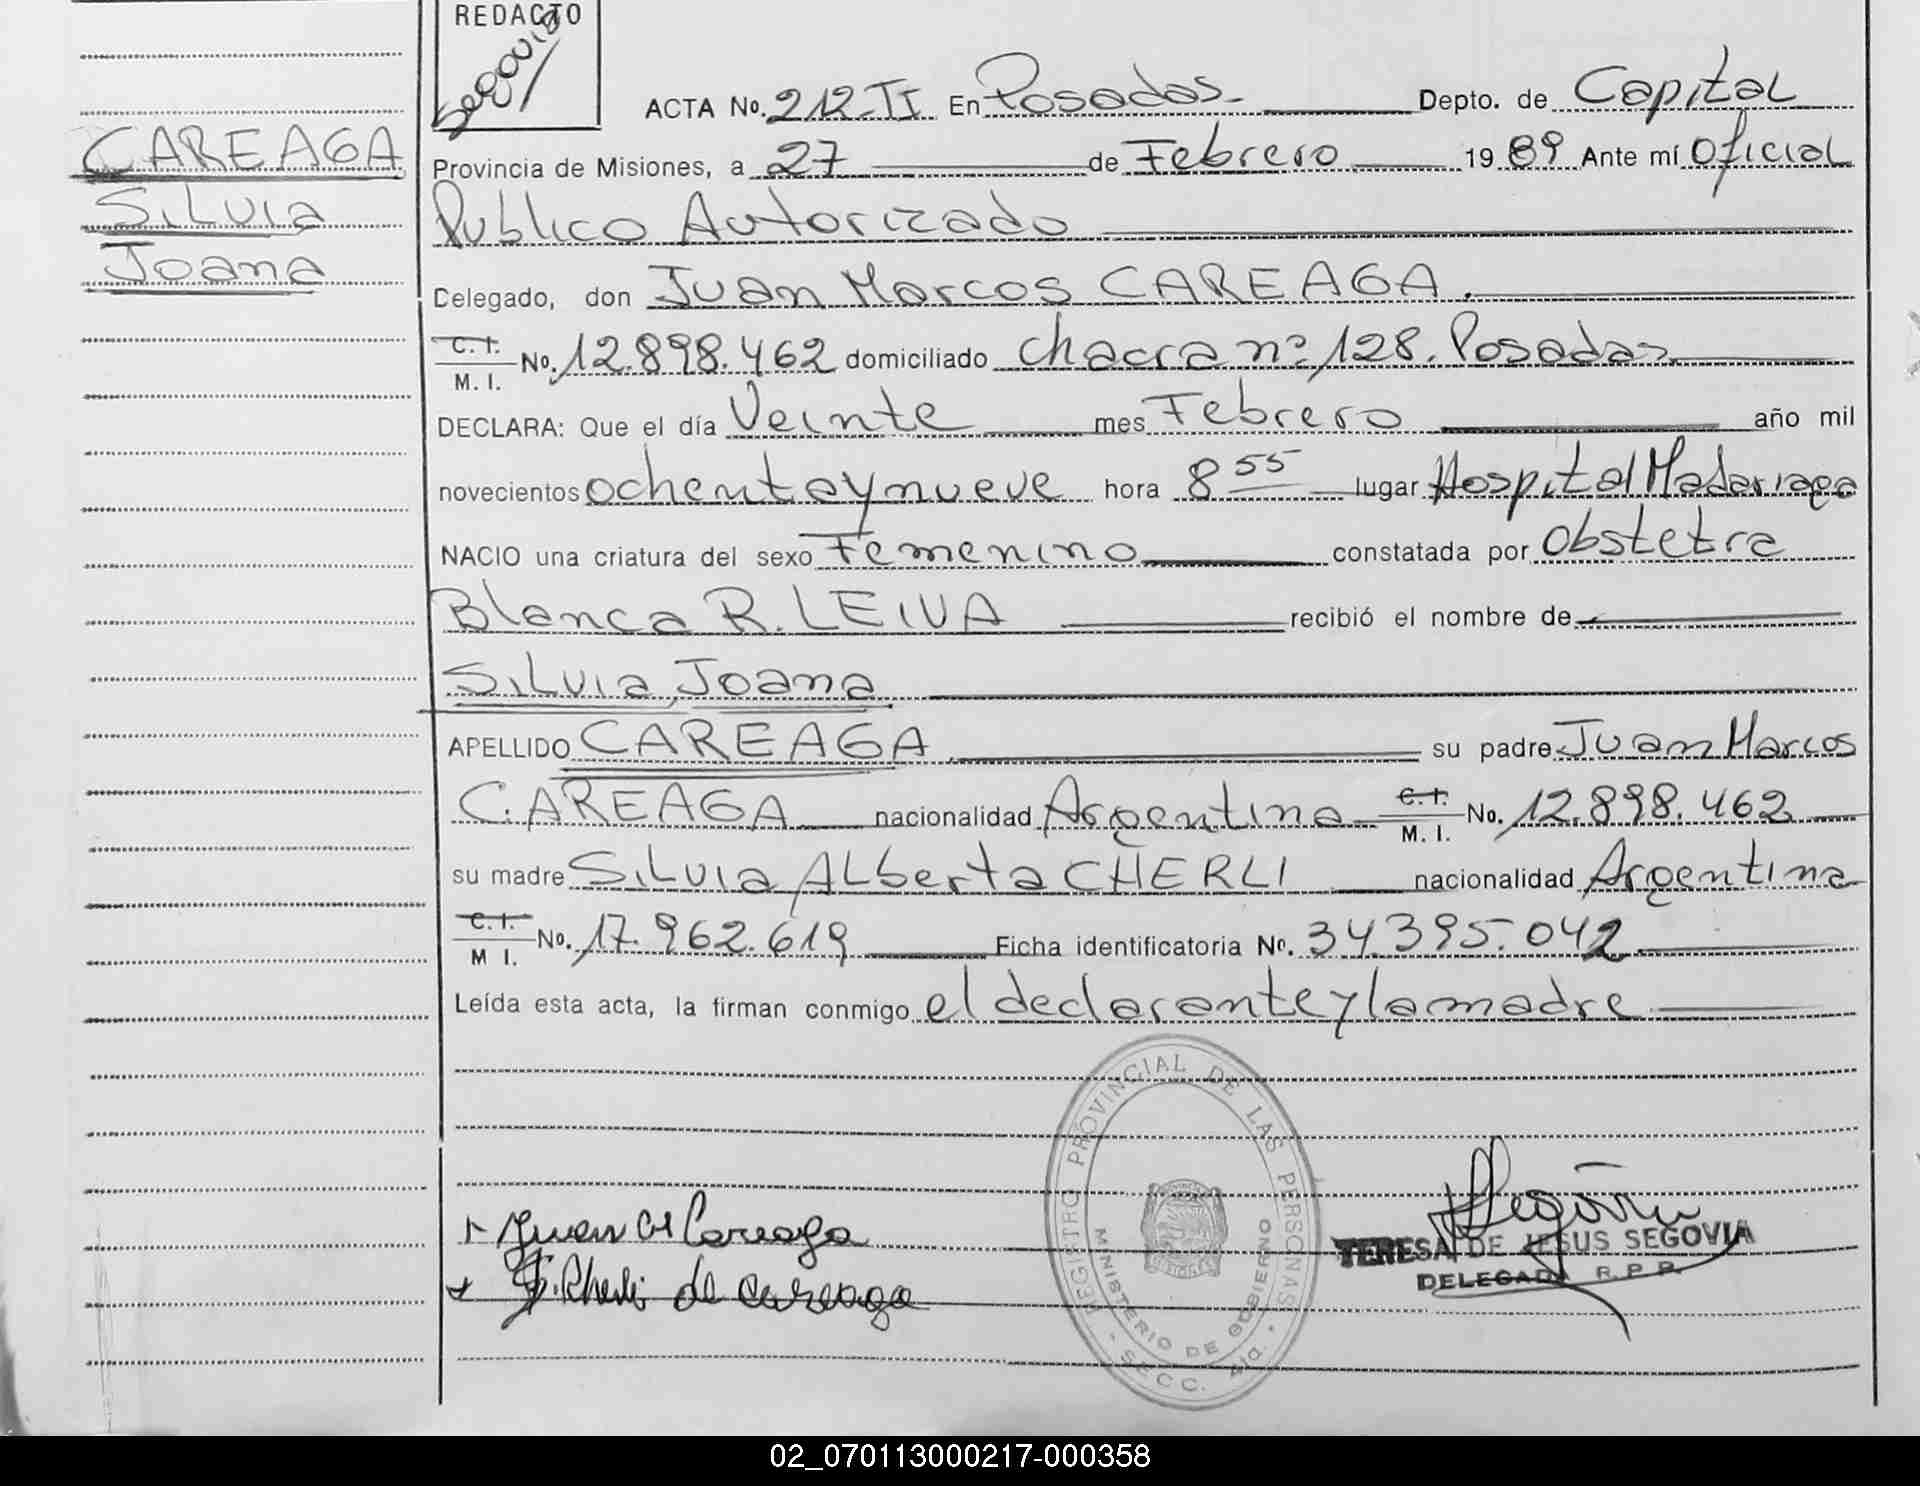 REDACTO
Segovia
CAREAGA
Silvia
Joana
ACTA No. 212-TI En Posadas Depto. de Capital
Provincia de Misiones, a 27 de Febrero 19 89 Ante mí Oficial
Publico Autorizado
Celegado, don Juan Marcos CAREAGA.
C. I. M. I. No. 12.898.462 domiciliado chacra nº 128. Posadas
DECLARA: Que el día Veinte mes Febrero año mil
novecientos ochenta y nueve hora 8 55 lugar Hospital Madariaga
NACIO una criatura del sexo Femenino constatada por Obstetra
Blanca R. LEIVA recibió el nombre de
Silvia Joana
APELLIDO CAREAGA su padre Juan Marcos
CAREAGA nacionalidad Argentina C. I. M. I. No. 12.898.462
su madre Silvia Alberta CHERLI nacionalidad Argentina
C. I. M I. No. 17.962.619 Ficha identificatoria Nº. 34.395.042
Leída esta acta, la firman conmigo el declarante y la madre
REGISTRO PROVINCIAL DE LAS PERSONAS
MINISTERIO DE GOBIERNO
SECC. 4ta.
Juan M Careaga
S. Cherli de Careaga
Segovia
TERESA DE JESUS SEGOVIA
DELEGADA R. P. P.
02_070113000217-000358